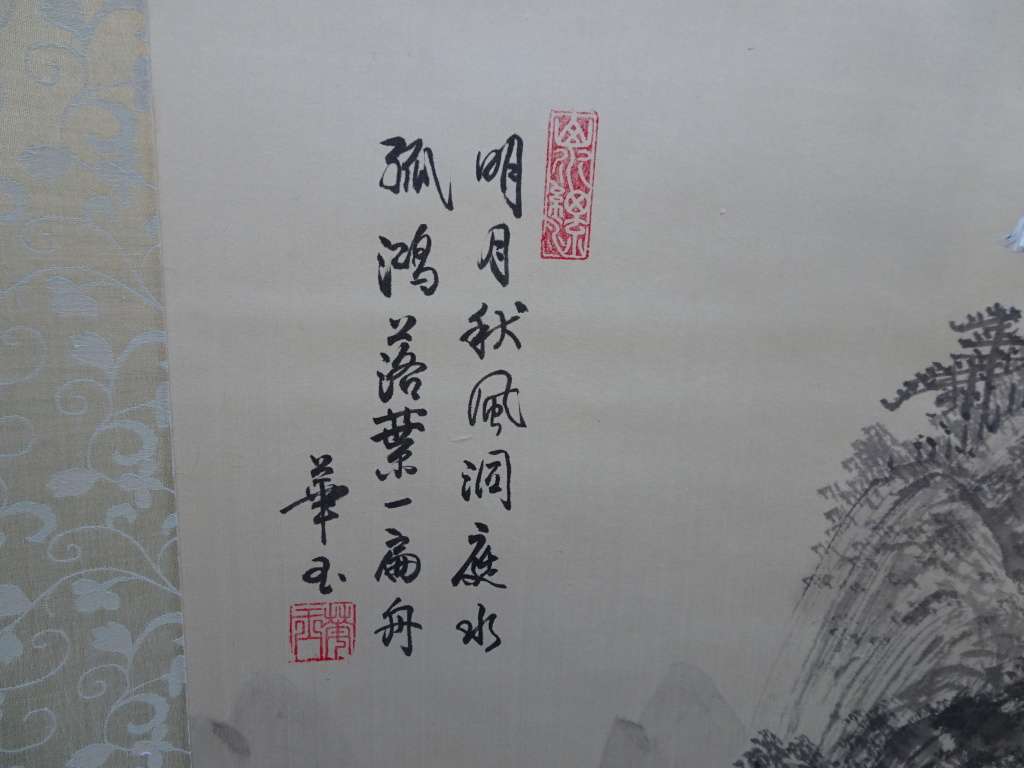 明月秋風洞庭水
孤鴻落葉一扁舟
華玉